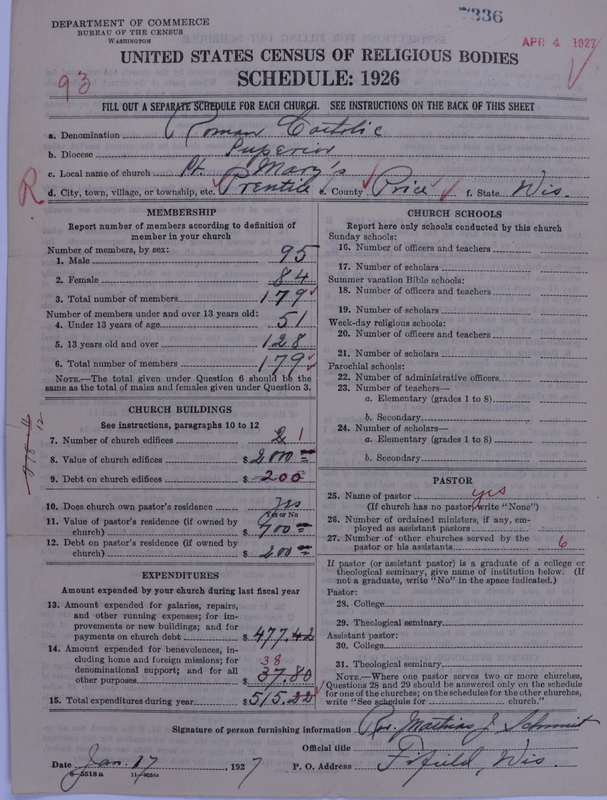 DEPARTMENT OF COMMERCE
BUREAU OF THE CENSUS
WASHINGTON
7336
APR 4 1927
UNITED STATES CENSUS OF RELIGIOUS BODIES
SCHEDULE: 1926
93
FILL OUT A SEPARATE SCHEDULE FOR EACH CHURCH. SEE INSTRUCTIONS ON THE BACK OF THIS SHEET
a. Denomination Roman Catholic
b. Diocese Superior
c. Local name of church St. Mary's
R
d. City, town, village, or township, etc. Prentice e. County Price f. State Wis.
MEMBERSHIP
Report number of members according to definition of member in your church
Number of members, by sex:
1. Male 95
2. Female 84
3. Total number of members 179
Number of members under and over 13 years old:
4. Under 13 years of age 51
5. 13 years old and over 128
6. Total number of members 179
NOTE.—The total given under Question 6 should be the same as the total of males and females given under Question 3.
CHURCH BUILDINGS
See instructions, paragraphs 10 to 12
7. Number of church edifices 2 1
8. Value of church edifices $ 2000
9. Debt on church edifices $ 200
10. Does church own pastor's residence Yes
Yes or No
11. Value of pastor's residence (if owned by church) $ 900
12. Debt on pastor's residence (if owned by church) $ 200
EXPENDITURES
Amount expended by your church during last fiscal year
13. Amount expended for salaries, repairs, and other running expenses; for improvements or new buildings; and for payments on church debt $ 477.42
14. Amount expended for benevolences, including home and foreign missions; for denominational support; and for all other purposes $ 37.80
38
15. Total expenditures during year $ 515.22
CHURCH SCHOOLS
Report here only schools conducted by this church
Sunday schools:
16. Number of officers and teachers
17. Number of scholars
Summer vacation Bible schools:
18. Number of officers and teachers
19. Number of scholars
Week-day religious schools:
20. Number of officers and teachers
21. Number of scholars
Parochial schools:
22. Number of administrative officers
23. Number of teachers—
a. Elementary (grades 1 to 8)
b. Secondary
24. Number of scholars—
a. Elementary (grades 1 to 8)
b. Secondary
PASTOR
25. Name of pastor yes
(If church has no pastor, write "None")
26. Number of ordained ministers, if any, employed as assistant pastors
27. Number of other churches served by the pastor or his assistants 6
If pastor (or assistant pastor) is a graduate of a college or theological seminary, give name of institution below. (If not a graduate, write "No" in the space indicated.)
Pastor:
28. College
29. Theological seminary
Assistant pastor:
30. College
31. Theological seminary
NOTE.—Where one pastor serves two or more churches, Questions 28 and 29 should be answered only on the schedule for one of the churches; on the schedules for the other churches, write "See schedule for church."
Signature of person furnishing information Rev. Mathias J. Schmit
Official title
Date Jan. 17, 1927 P. O. Address Fifield, Wis.